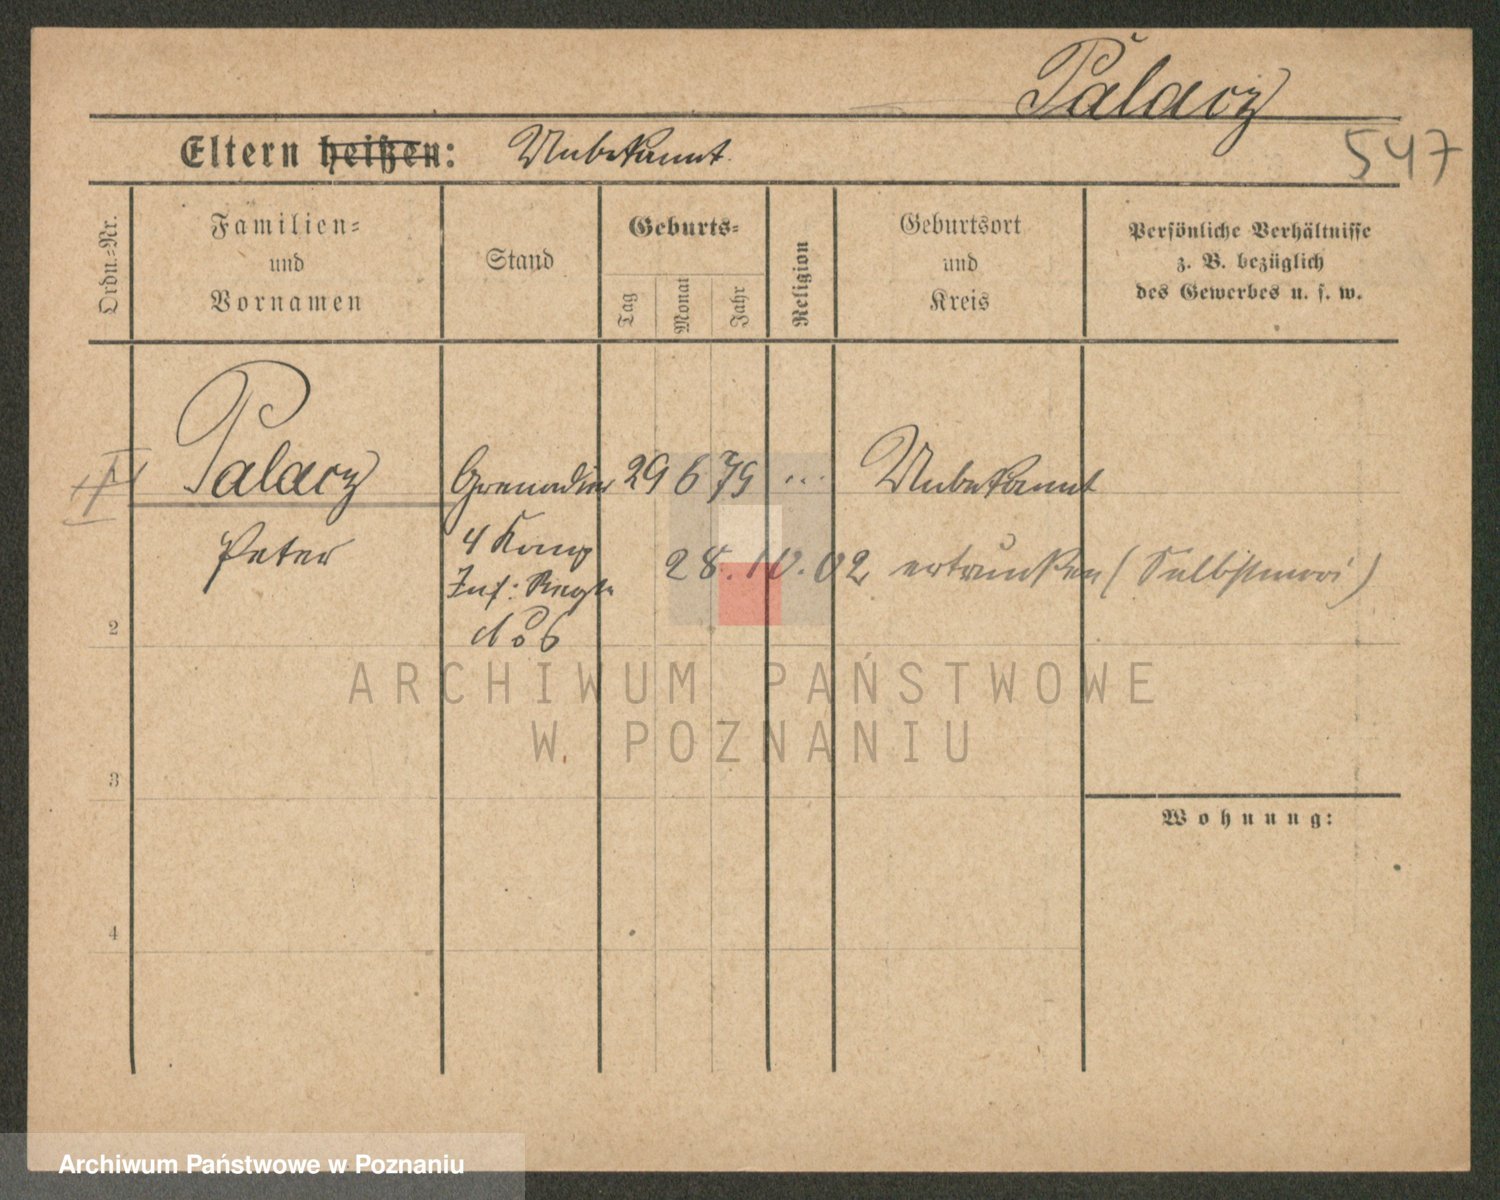 Palacz
547
Eltern heißen: Unbekannt.
Ordn.-Nr.
Familien-
und
Vornamen
Stand
Geburts-
Tag
Monat
Jahr
Religion
Geburtsort
und
Kreis
Persönliche Verhältnisse
z. B. bezüglich
des Gewerbes u. s. w.
Palacz Grenadier 29 6 79 ... Unbekannt
Peter 4 Komp 28.10.02 ertrunken (Selbstmord)
Inf: Regts
No 6
2
3
4
Wohnung:
ARCHIWUM PAŃSTWOWE
W POZNANIU
Archiwum Państwowe w Poznaniu